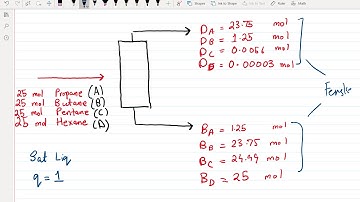 25 mol Propane (A)
25 mol Butane (B)
25 mol Pentane (C)
25 mol Hexane (D)
Sat Liq
q = 1
DA = 23.75 mol
DB = 1.25 mol
DC = 0.0056 mol
DD = 0.00003 mol
BA = 1.25 mol
BB = 23.75 mol
BC = 24.99 mol
BD = 25 mol
Fenske